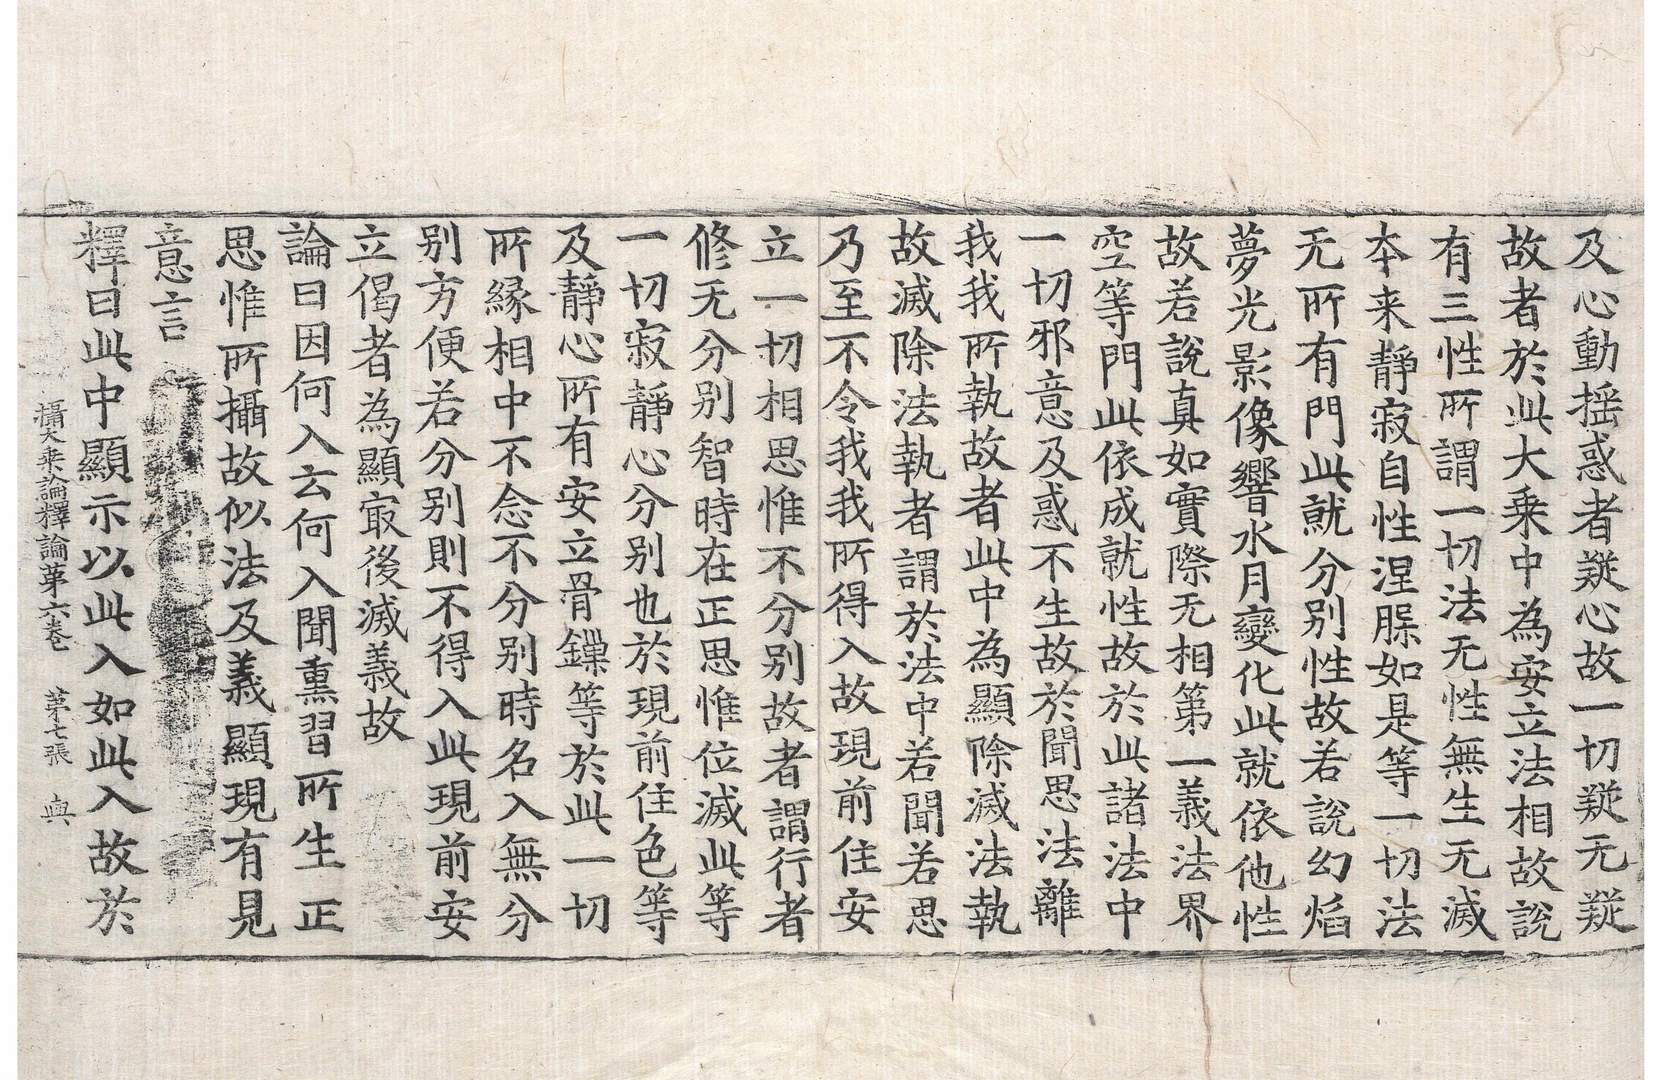 及心動揺惑者疑心故一切疑无疑
故者於此大乗中為安立法相故說
有三性所謂一切法无性無生无滅
本来靜寂自性涅脲如是等一切法
无所有門此就分别性故若說幻焰
夢光影像響水月變化此就依他性
故若說真如實際无相第一義法界
空等門此依成就性故於此諸法中
一切邪意及惑不生故於聞思法離
我我所執故者此中為顯除滅法執
故滅除法執者謂於法中若聞若思
乃至不令我我所得入故現前住安
立一切相思惟不分别故者謂行者
修无分别智時在正思惟位滅此等
一切寂靜心分别也於現前住色等
及靜心所有安立骨鏁等於此一切
所縁相中不念不分别時名入無分
别方便若分别則不得入此現前安
立偈者為顯㝡後滅義故
論曰因何入云何入聞熏習所生正
思惟所攝故似法及義顯現有見
意言
釋曰此中顯示以此入如此入故於
攝大乗論釋論苐六卷 苐七張 㒷